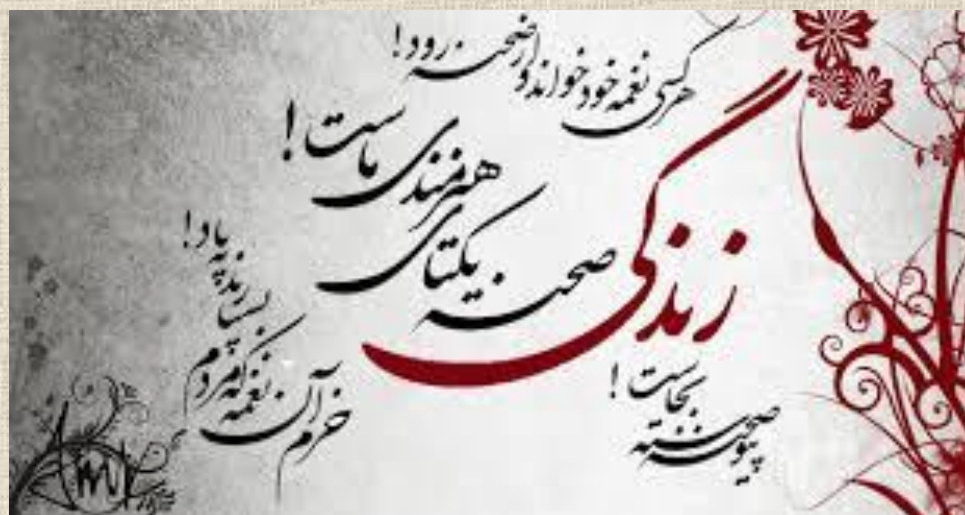 زندگی صحنه یکتای هنرمندی ماست!
هرکسی نغمه خود خواند و از صحنه رود!
صحنه پیوسته بجاست!
خرم آن نغمه که مردم بسپارند به یاد!